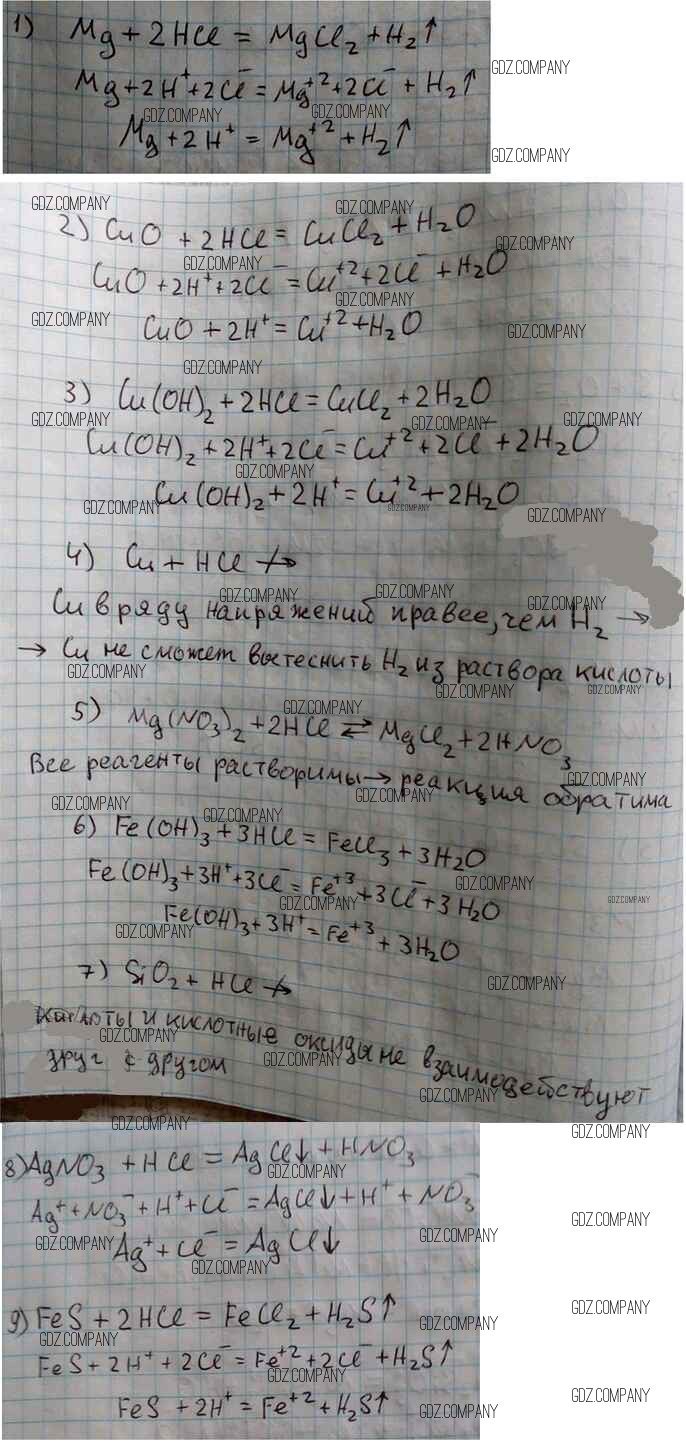 1) Mg + 2HCl = MgCl₂ + H₂↑
Mg + 2H⁺ + 2Cl⁻ = Mg⁺² + 2Cl⁻ + H₂↑
Mg + 2H⁺ = Mg⁺² + H₂↑
2) CuO + 2HCl = CuCl₂ + H₂O
CuO + 2H⁺ + 2Cl⁻ = Cu⁺² + 2Cl⁻ + H₂O
CuO + 2H⁺ = Cu⁺² + H₂O
3) Cu(OH)₂ + 2HCl = CuCl₂ + 2H₂O
Cu(OH)₂ + 2H⁺ + 2Cl⁻ = Cu⁺² + 2Cl⁻ + 2H₂O
Cu(OH)₂ + 2H⁺ = Cu⁺² + 2H₂O
4) Cu + HCl ↛
Cu в ряду напряжений правее, чем H₂ →
→ Cu не сможет вытеснить H₂ из раствора кислоты
5) Mg(NO₃)₂ + 2HCl ⇄ MgCl₂ + 2HNO₃
Все реагенты растворимы → реакция обратима
6) Fe(OH)₃ + 3HCl = FeCl₃ + 3H₂O
Fe(OH)₃ + 3H⁺ + 3Cl⁻ = Fe⁺³ + 3Cl⁻ + 3H₂O
Fe(OH)₃ + 3H⁺ = Fe⁺³ + 3H₂O
7) SiO₂ + HCl ↛
Кислоты и кислотные оксиды не взаимодействуют
друг с другом
8) AgNO₃ + HCl = AgCl↓ + HNO₃
Ag⁺ + NO₃⁻ + H⁺ + Cl⁻ = AgCl↓ + H⁺ + NO₃⁻
Ag⁺ + Cl⁻ = AgCl↓
9) FeS + 2HCl = FeCl₂ + H₂S↑
FeS + 2H⁺ + 2Cl⁻ = Fe⁺² + 2Cl⁻ + H₂S↑
FeS + 2H⁺ = Fe⁺² + H₂S↑
GDZ.COMPANY